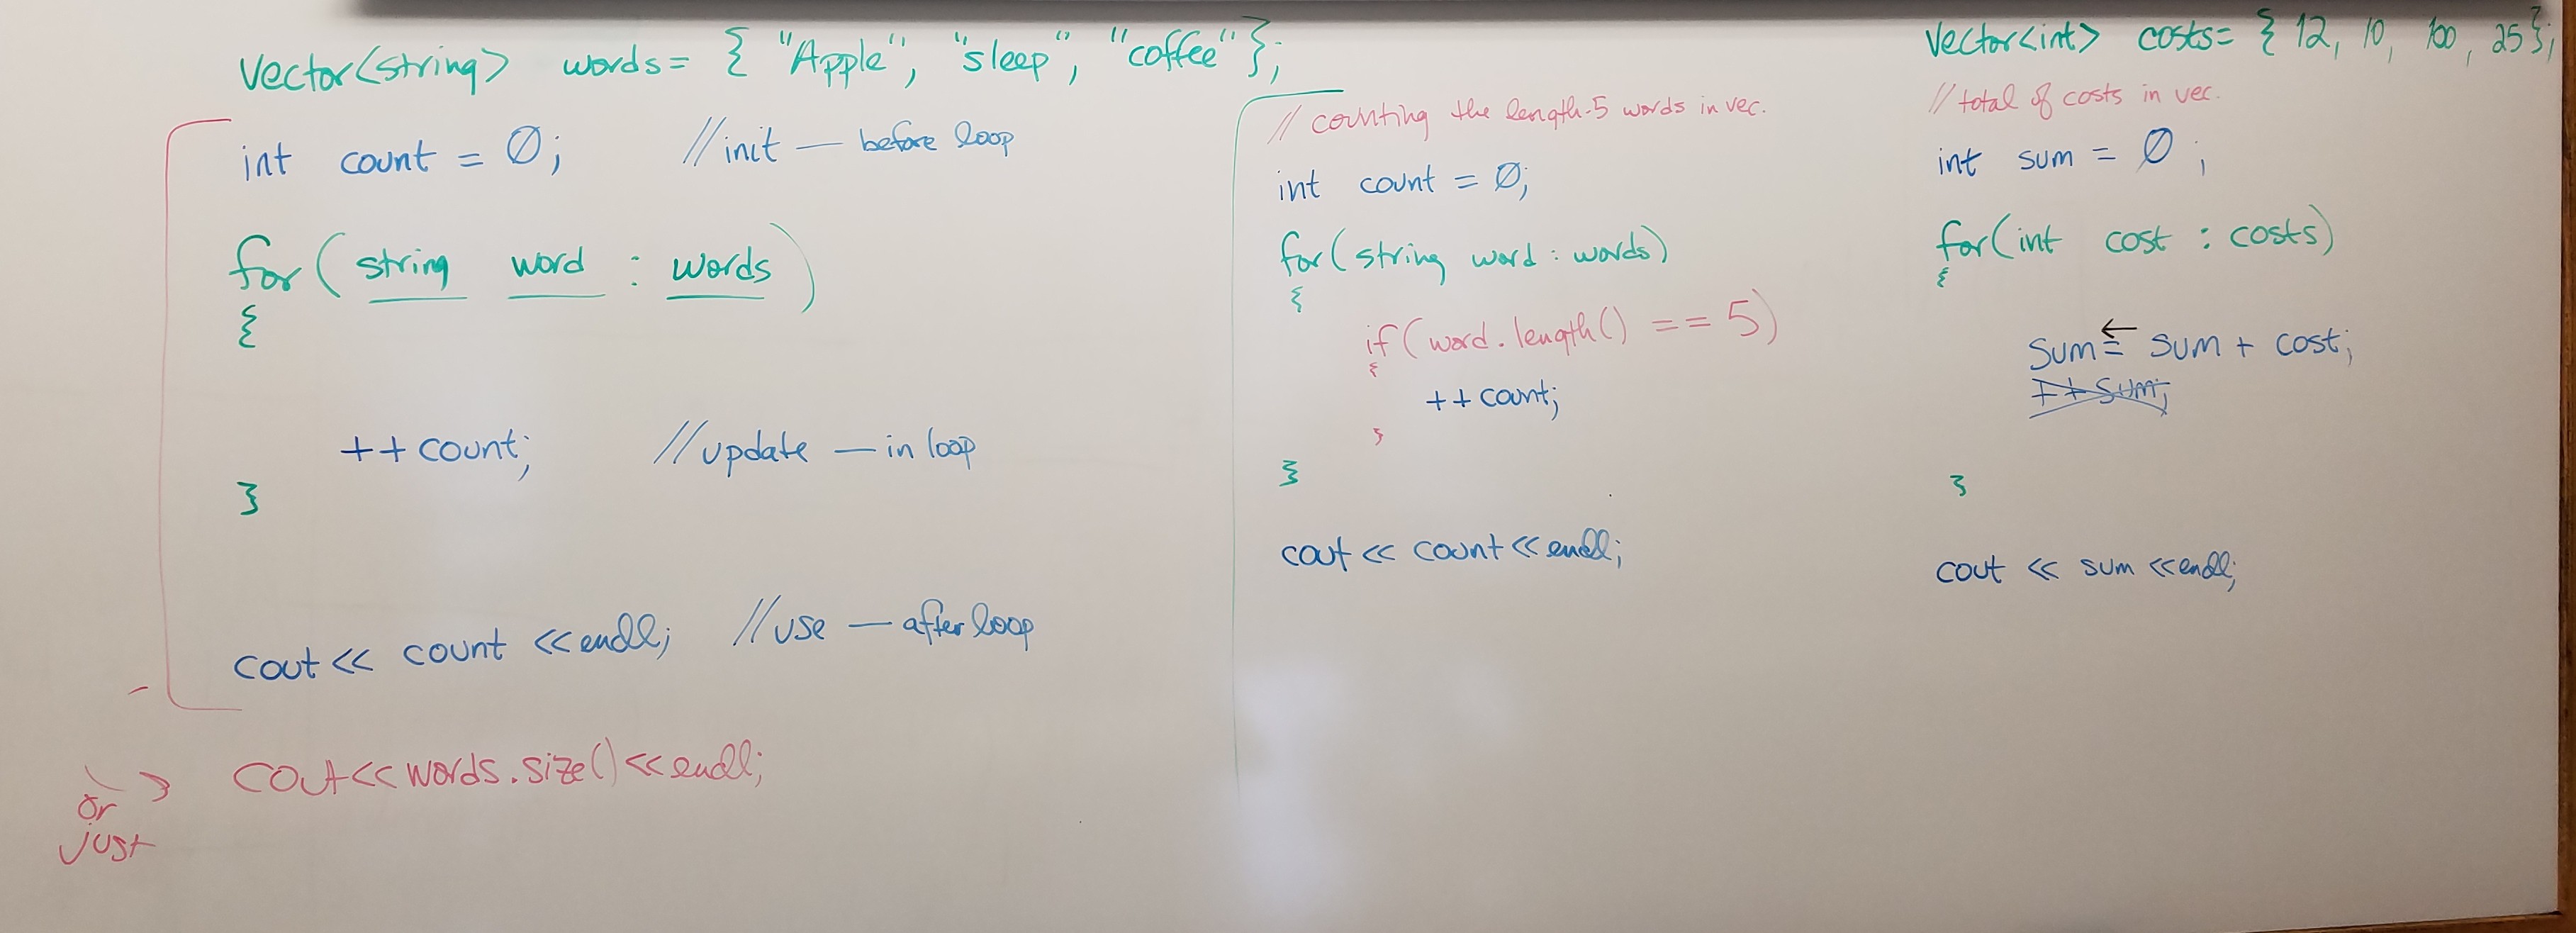 vector<string> words= { "Apple", "sleep", "coffee" };
int count = 0; //init — before loop
for( string word : words )
{
++count; //update — in loop
}
cout << count <<endl; //use — after loop
or just
cout<<words.size()<<endl;
// counting the length-5 words in vec.
int count = 0;
for( string word : words)
{
if( word.length() == 5)
{
++count;
}
}
cout << count << endl;
vector<int> costs= { 12, 10, 100, 25 };
// total of costs in vec.
int sum = 0 ;
for( int cost : costs)
{
sum = ← sum + cost;
++sum;
}
cout << sum <<endl;